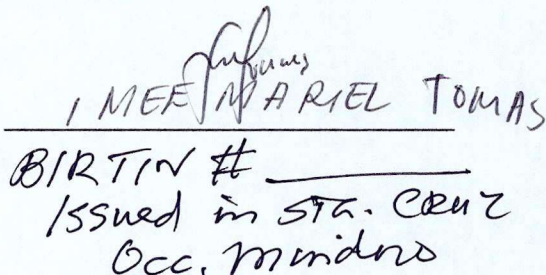 IMEE MARIEL TOMAS
BIRTIN # ________
Issued in STA. CRUZ
Occ. Mindoro